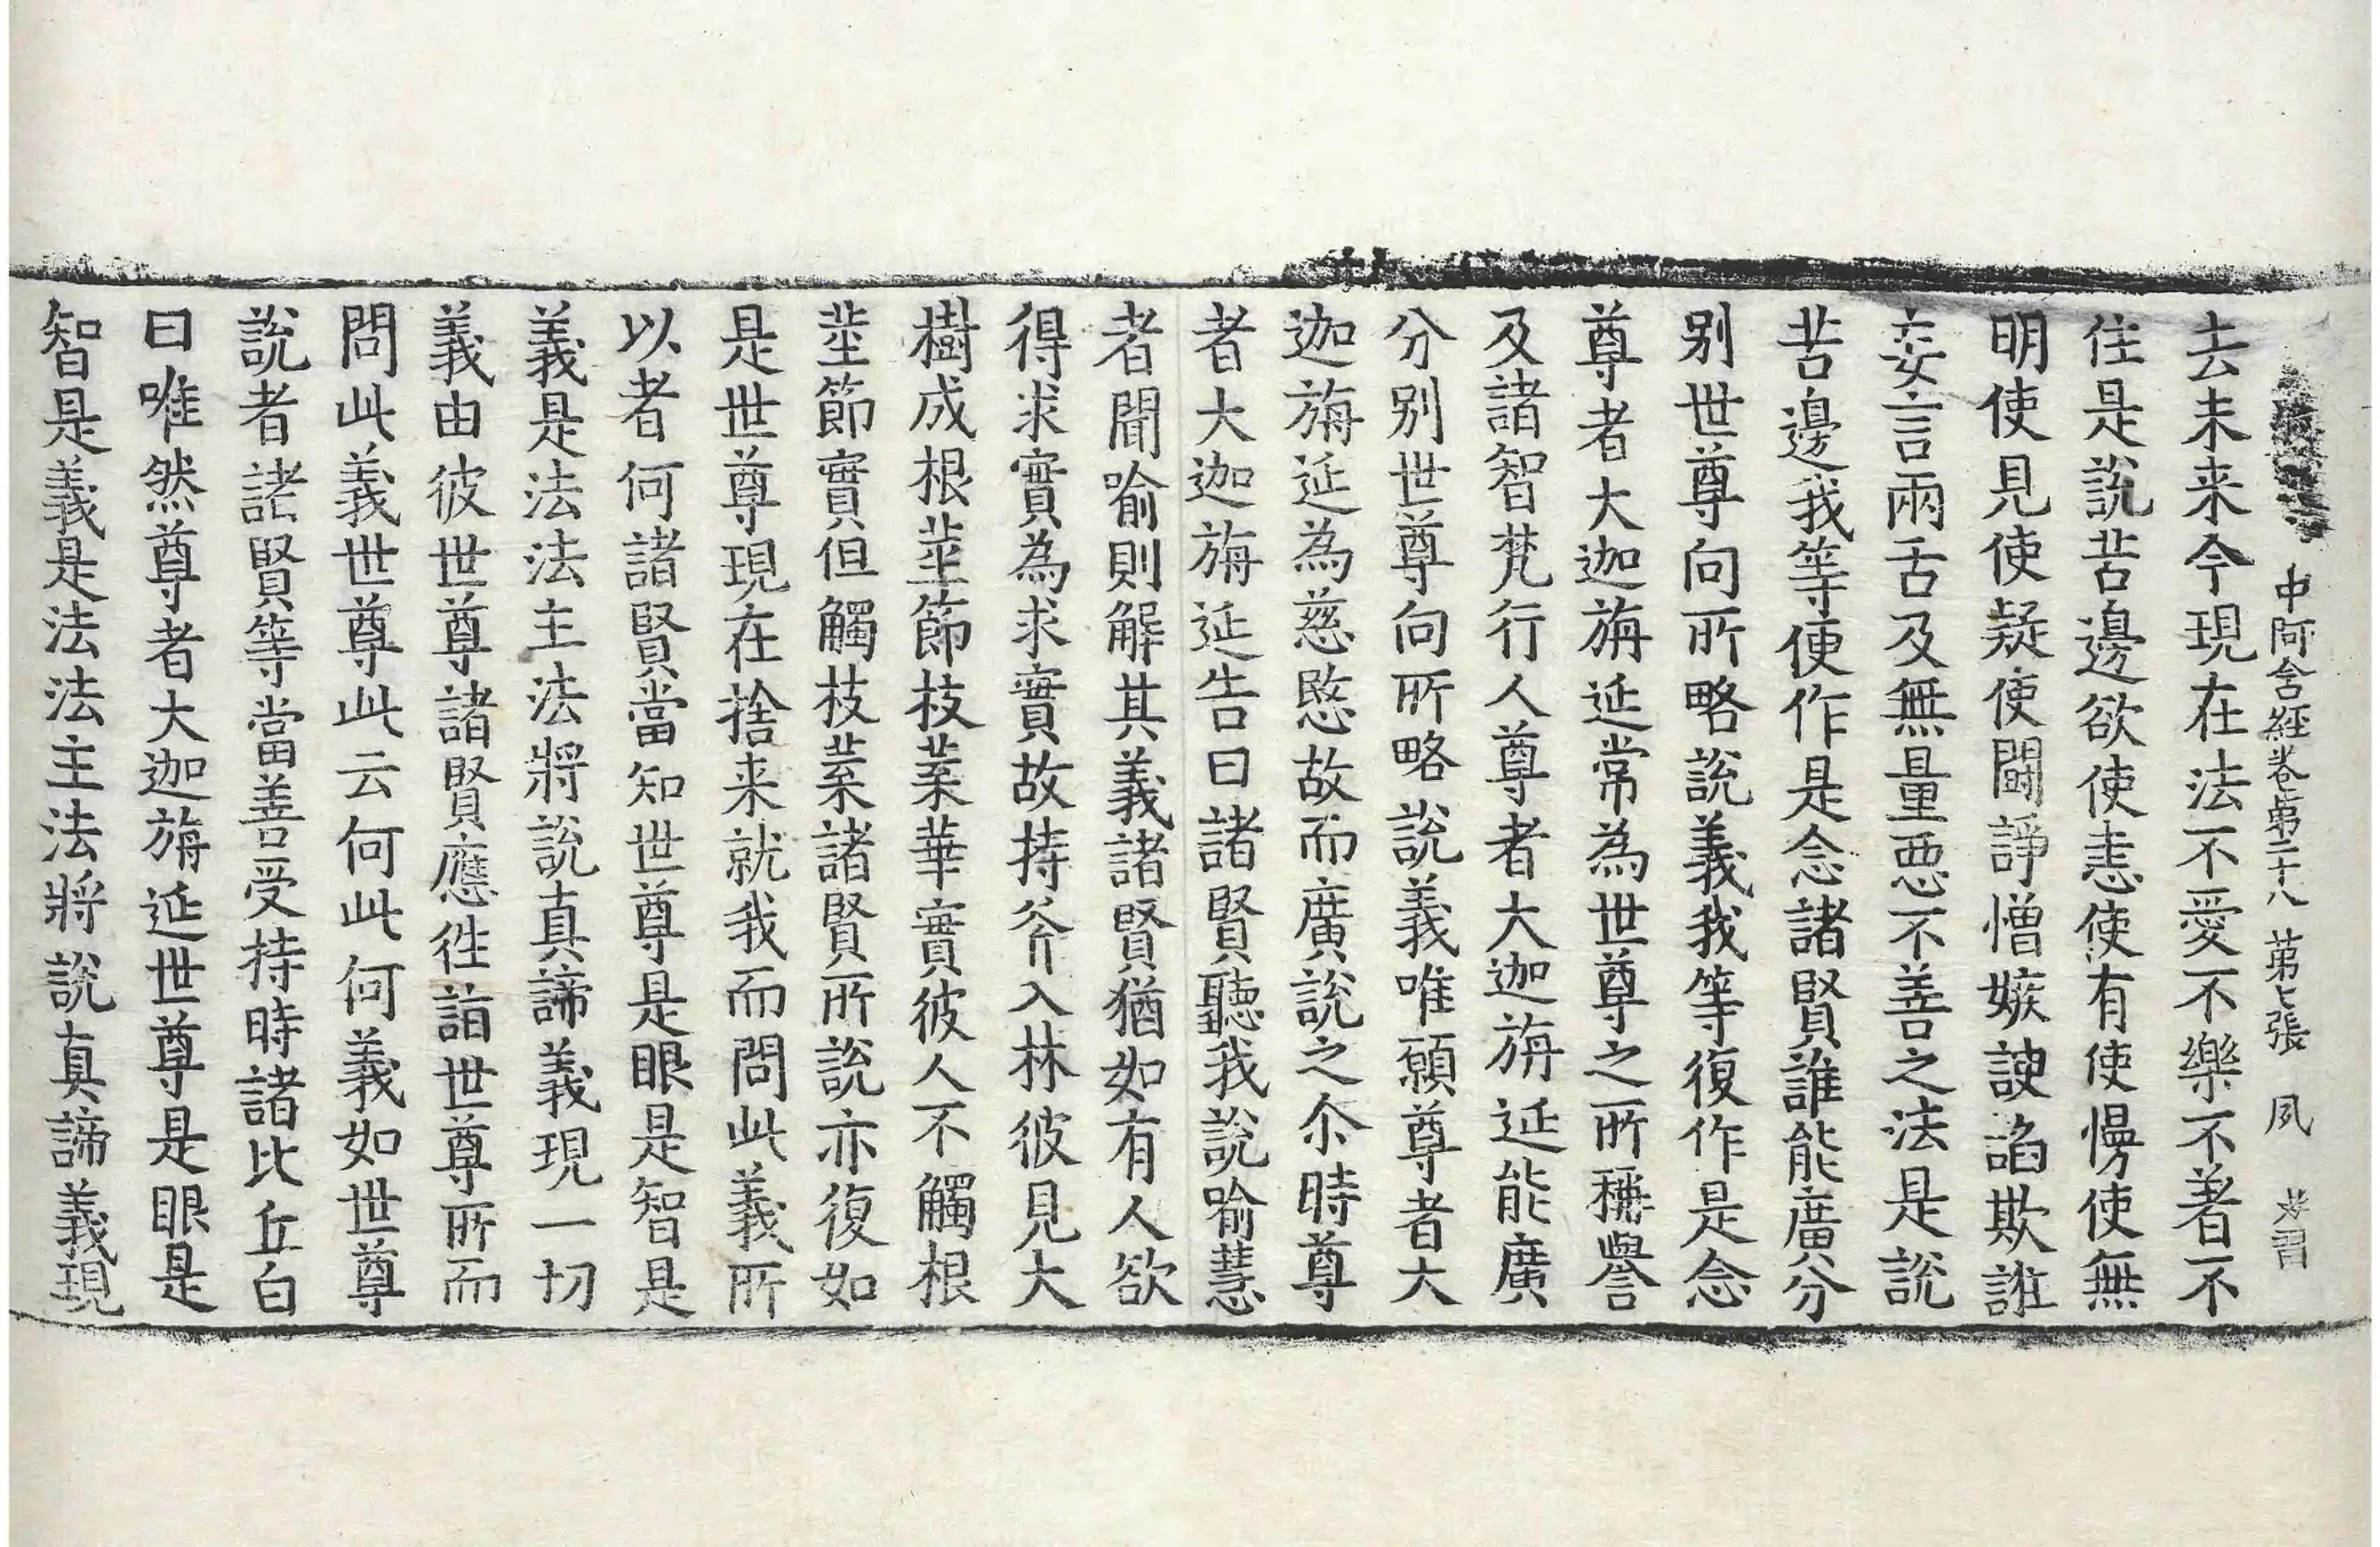 中阿含經卷第二十八 第七張 夙
去未来今現在法不愛不樂不著不
住是說苦邊欲使恚使有使慢使無
明使見使疑使鬪諍憎嫉諛諂欺誑
妄言兩舌及無量惡不善之法是說
苦邊我等便作是念諸賢誰能廣分
別世尊向所略說義我等復作是念
尊者大迦旃延常為世尊之所稱譽
及諸智梵行人尊者大迦旃延能廣
分別世尊向所略說義唯願尊者大
迦旃延為慈愍故而廣說之尒時尊
者大迦旃延告曰諸賢聽我說喻慧
者聞喻則解其義諸賢猶如有人欲
得求實為求實故持斧入林彼見大
樹成根莖節枝葉華實彼人不觸根
莖節實但觸枝葉諸賢所說亦復如
是世尊現在捨来就我而問此義所
以者何諸賢當知世尊是眼是智是
義是法法主法將說真諦義現一切
義由彼世尊諸賢應往詣世尊所而
問此義世尊此云何此何義如世尊
說者諸賢等當善受持時諸比丘白
曰唯然尊者大迦旃延世尊是眼是
智是義是法法主法將說真諦義現